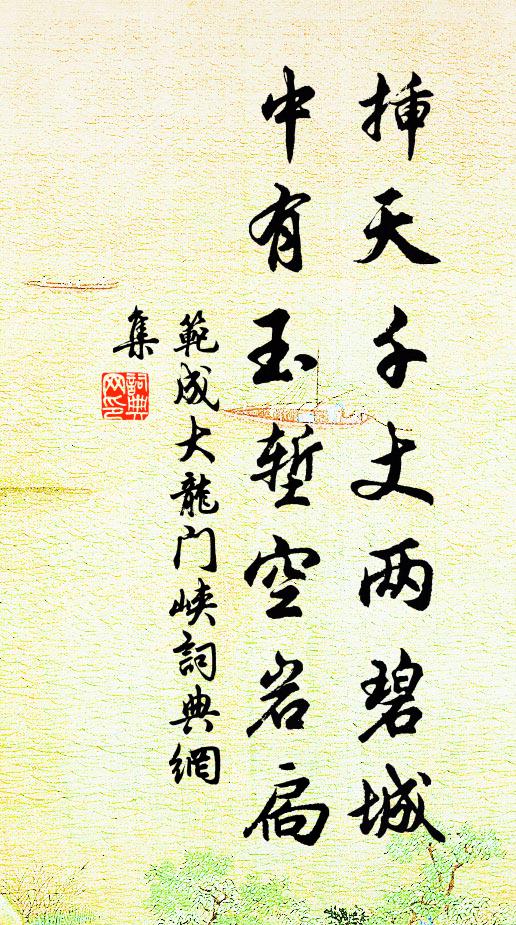 挿天千丈两碧城
中有玉堑空岩扃
範成大龍门峡詞典網
集
詞典
网印